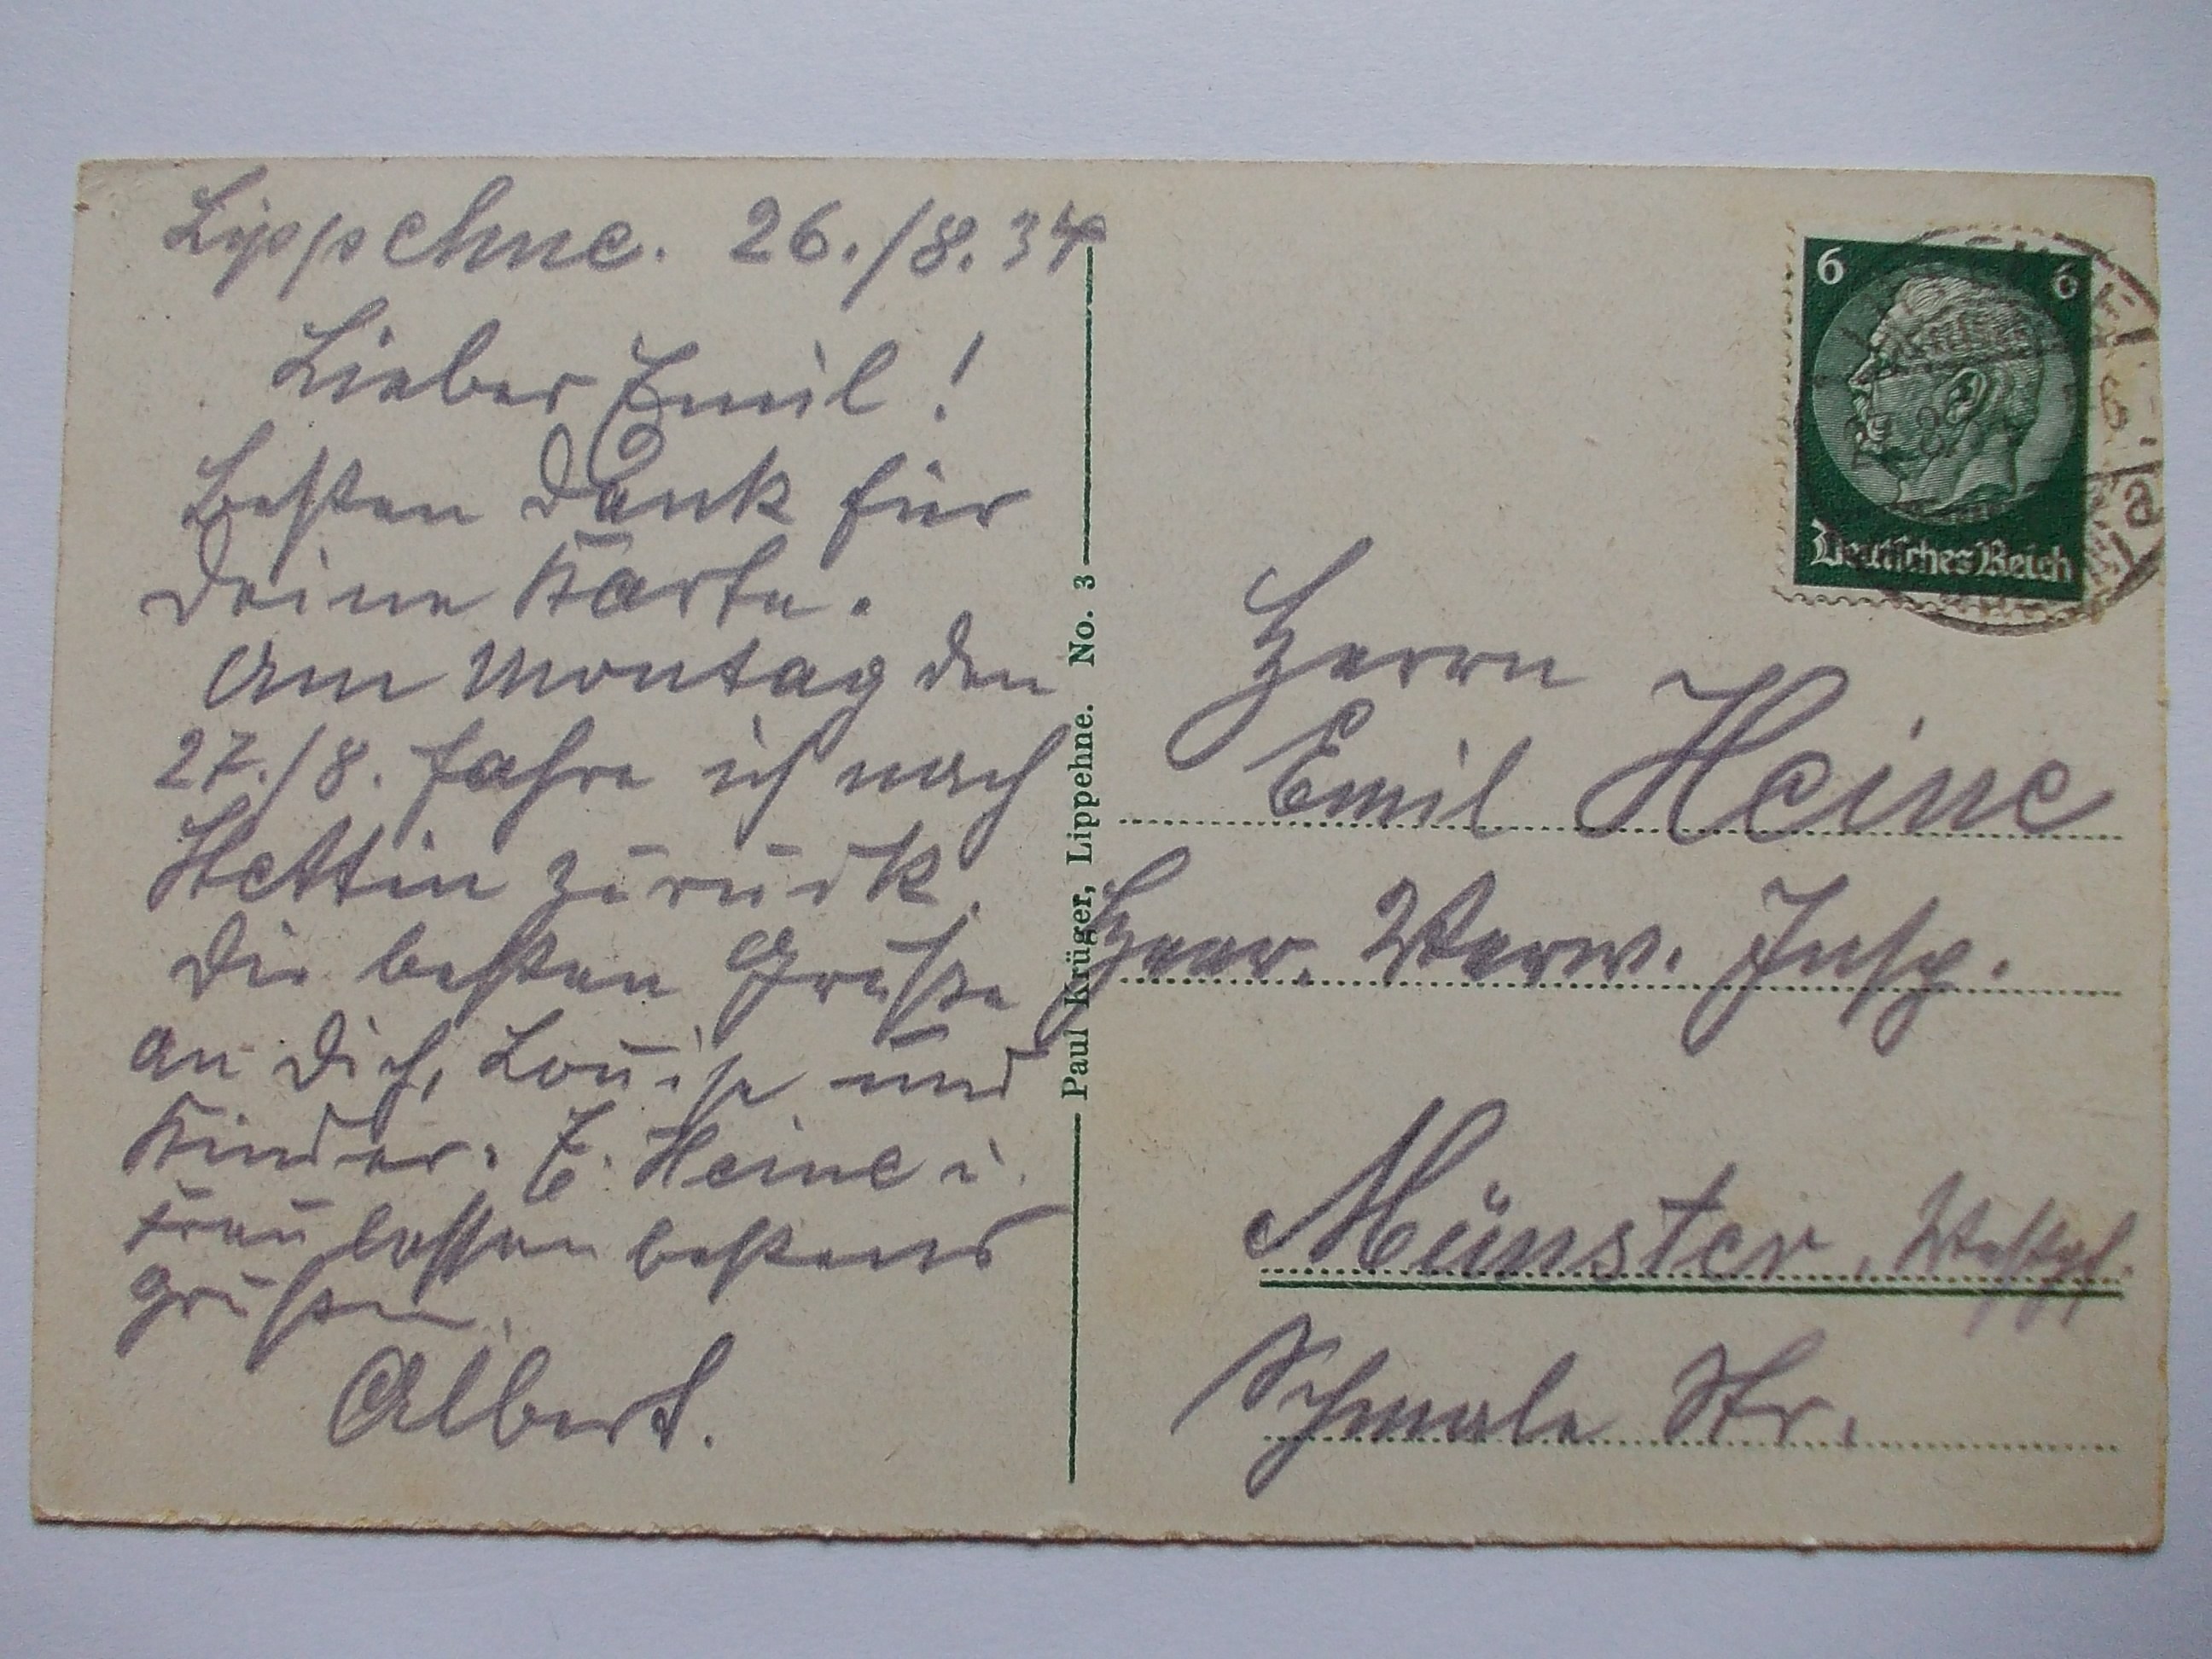 Lippehne. 26./8.34
Lieber Emil!
Besten Dank für
Deine Karte.
Am Montag den
27./8. fahre ich nach
Stettin zurück.
Die besten Grüße
an Dich, Louise und
Kinder. E. Heine u.
Frau lassen bestens
grüßen.
Albert.
Paul Krüger, Lippehne. No. 3
6 6
Deutsches Reich
a
Herrn
Emil Heine
Heer. Verw. Insp.
Münster, Westpf.
Schmale Str.